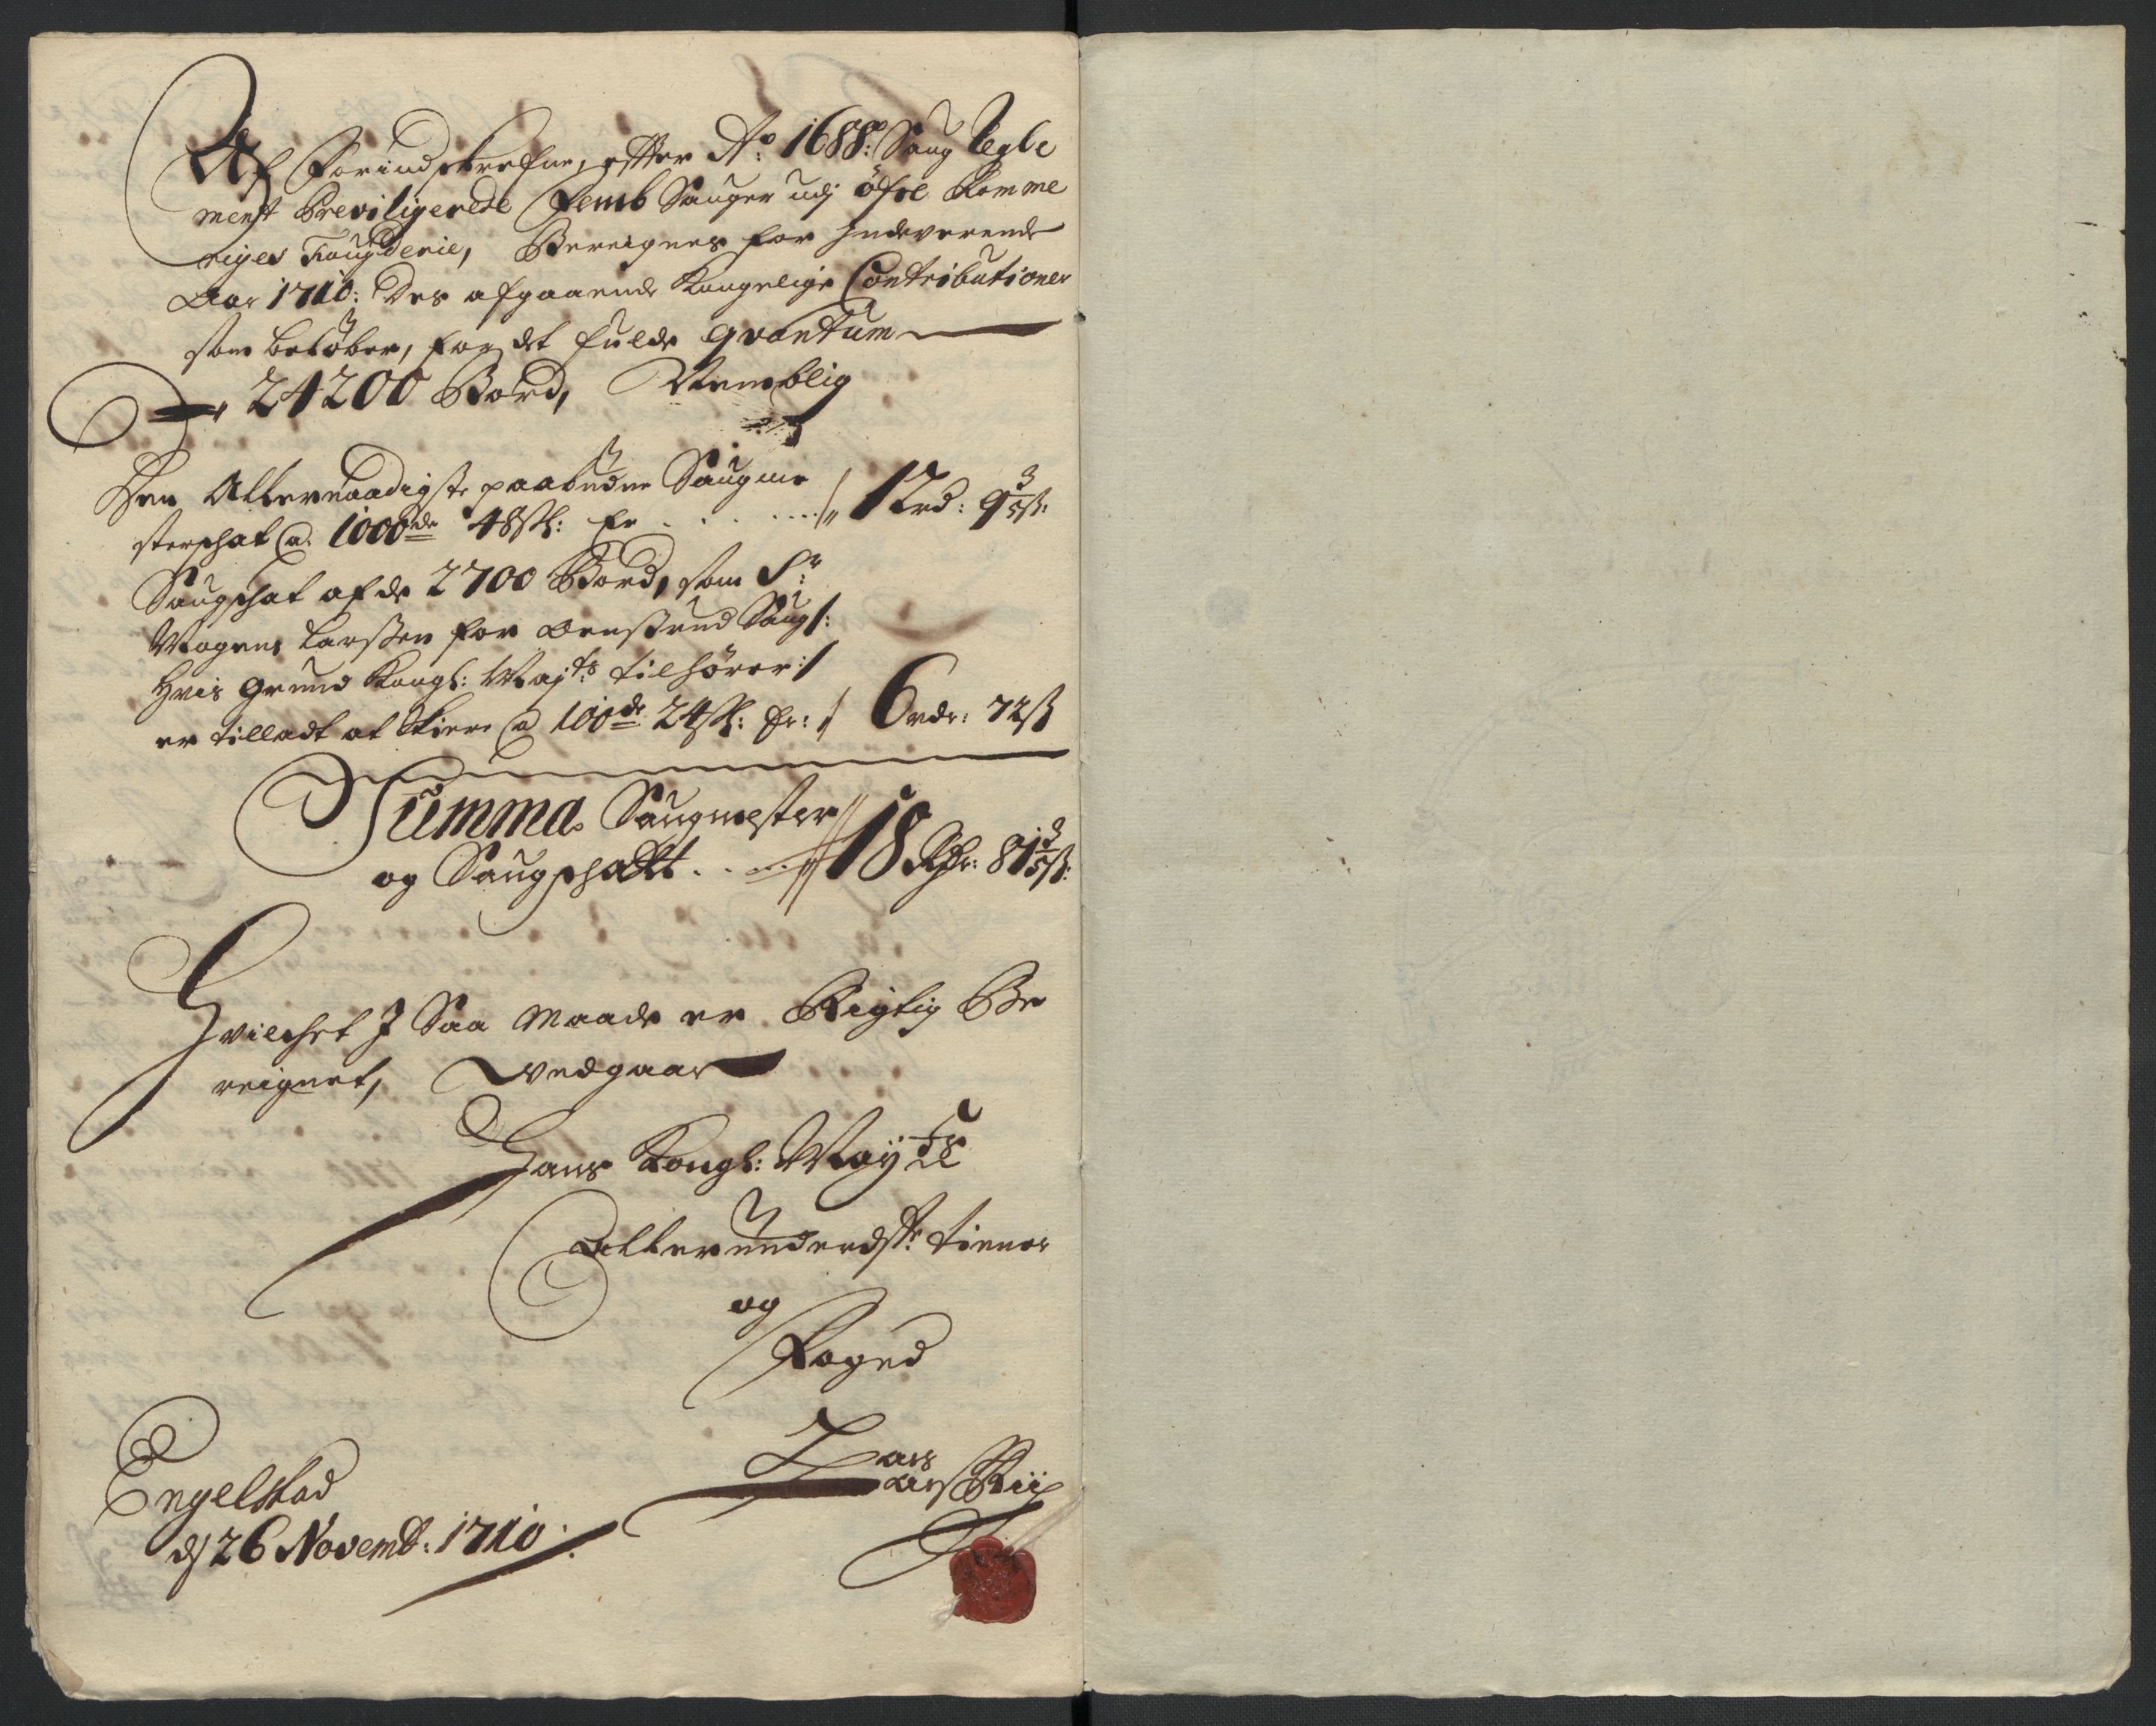 Af Forindskrefne, efter A° 1688: Saug Regle
ment Previligerede Femb Sauger udj öfre Romme
riges Fougderie, Bereignes for Indeverende
Aar 1710: Des afgaaende Kongelige Contributioner
som beløber, for det fulde qvantum
24200 Bord, Nemblig
Den Allernaadigste paabudne Saugme
sterschat a 1000de 48sk: er . . . . . 12rd: 9 3/5 s:
Saugschat af de 2700 Bord, som Sr:
Mogens Larssen for Aensrud Saug/:
hvis grund Kongl: Maj:ts tilhörer:/
er tilladt at Skiere a 100de 24sk: er: 6rdr: 72s
Summa Saugmester
og Saugschatt . . . 18Rdr: 81 3/5 s:
Hvilchet J Saa Maade er Rigtig Be
reignet, vedgaar
Hans Kongl: Mayts
Allerunderdste: tiener
og
Foged
Engelstad
dj 26 Novemb: 1710.